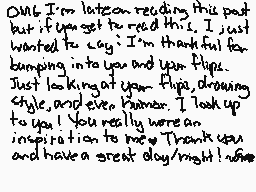 OMG I'm late on reading this post
but if you get to read this, I just
wanted to say: I'm thankful for
bumping into you and your flips.
Just looking at your flips, drawing
style, and even humor. I look up
to you! You really were an
inspiration to me♥ Thank you
and have a great day/night!